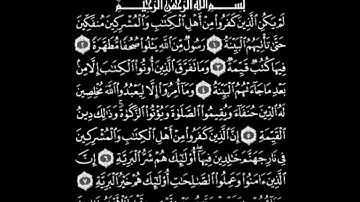 بِسْمِ اللَّهِ الرَّحْمَٰنِ الرَّحِيمِ
لَمْ يَكُنِ الَّذِينَ كَفَرُوا مِنْ أَهْلِ الْكِتَابِ وَالْمُشْرِكِينَ مُنفَكِّينَ
حَتَّىٰ تَأْتِيَهُمُ الْبَيِّنَةُ ١ رَسُولٌ مِّنَ اللَّهِ يَتْلُو صُحُفًا مُّطَهَّرَةً ٢
فِيهَا كُتُبٌ قَيِّمَةٌ ٣ وَمَا تَفَرَّقَ الَّذِينَ أُوتُوا الْكِتَابَ إِلَّا مِن
بَعْدِ مَا جَاءَتْهُمُ الْبَيِّنَةُ ٤ وَمَا أُمِرُوا إِلَّا لِيَعْبُدُوا اللَّهَ مُخْلِصِينَ
لَهُ الدِّينَ حُنَفَاءَ وَيُقِيمُوا الصَّلَوٰةَ وَيُؤْتُوا الزَّكَوٰةَ وَذَٰلِكَ دِينُ
الْقَيِّمَةِ ٥ إِنَّ الَّذِينَ كَفَرُوا مِنْ أَهْلِ الْكِتَابِ وَالْمُشْرِكِينَ
فِي نَارِ جَهَنَّمَ خَالِدِينَ فِيهَا أُولَٰئِكَ هُمْ شَرُّ الْبَرِيَّةِ ٦ إِنَّ
الَّذِينَ آمَنُوا وَعَمِلُوا الصَّالِحَاتِ أُولَٰئِكَ هُمْ خَيْرُ الْبَرِيَّةِ ٧